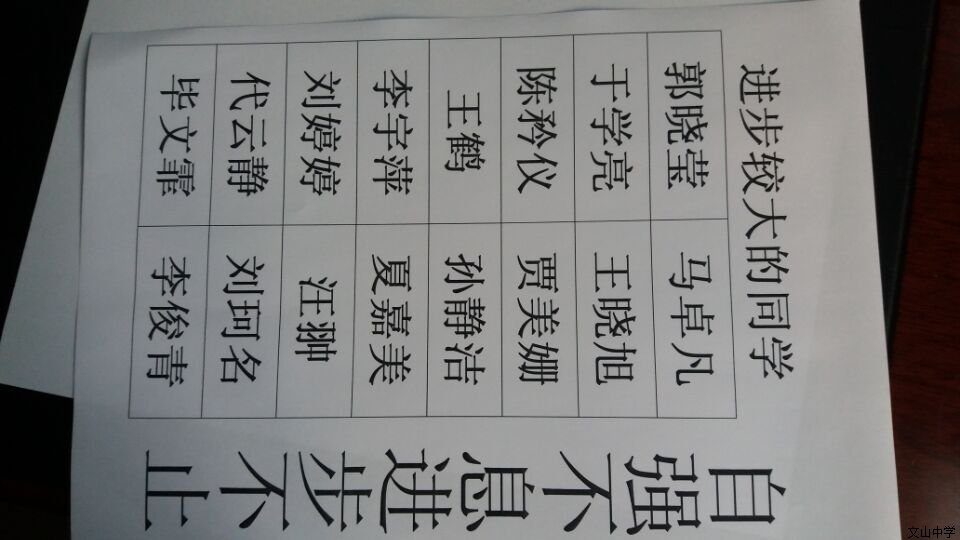 进步较大的同学
郭晓莹 马卓凡
于学亮 王晓旭
陈矜仪 贾美姗
王鹤 孙静洁
李宇萍 夏嘉美
刘婷婷 汪翀
代云静 刘珂名
毕文霏 李俊青
自强不息进步不止
文山中学